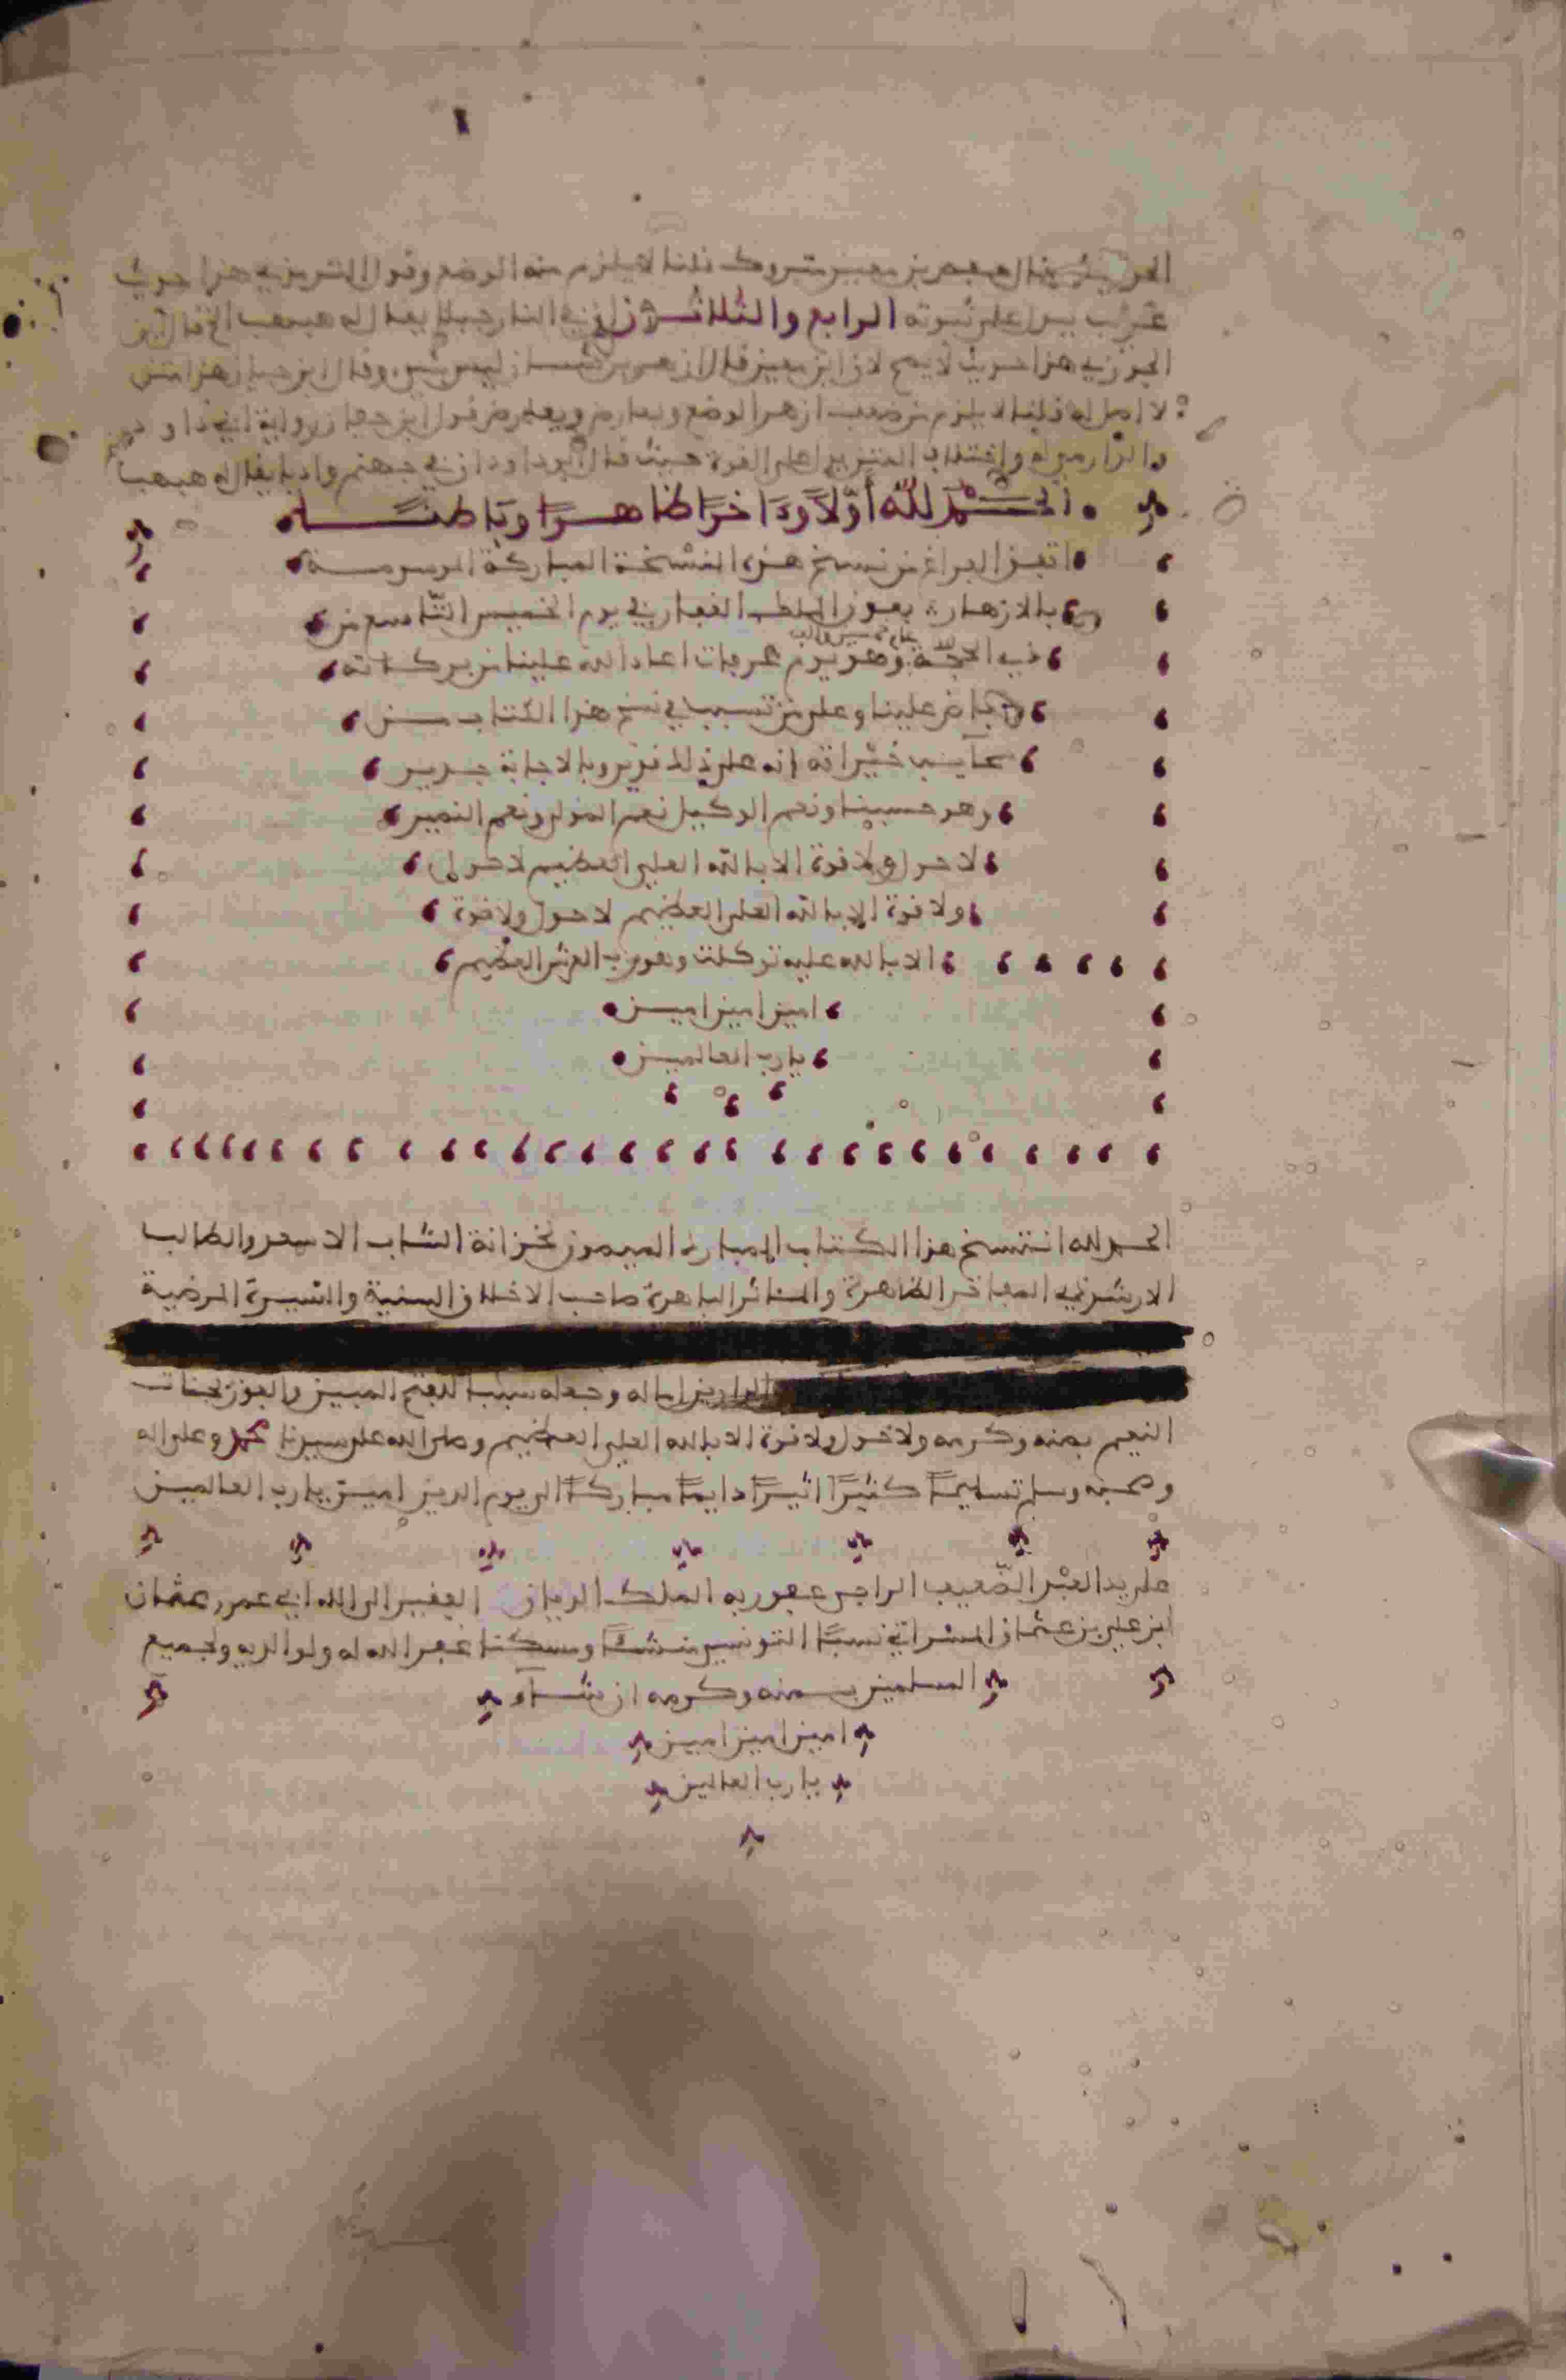 فال جعفر بن معين متروك قلنا لا يلزم منه الوضع وقول الترمذي هذا حديث
غريب يدل على ثبوته الرابع والثلاثون ان في النار جبلا يقال له هبهب الخ قال ابن
الجوزي هذا حديث لا يصح لان ابن معين قال ازهر بن سنان ليس بشيء وقال ابن حبان هذا متن
لا اصل له قلنا لا يلزم من ضعف ازهر الوضع ويعارض قول ابن حبان رواية ابي داود
على القوة حيث قال ابو داود ان في جهنم واديا يقال له هبهب
الحمد لله أولا وءاخرا ظاهرا وباطنا
اتفق الفراغ من نسخ هذه النسخة المباركة الموسومة
بالازهار بعون الملك الغفار في يوم الخميس التاسع من
ذي الحجة وهو يوم عرفات اعاد الله علينا من بركاته
وافاض علينا وعلى من تسبب في نسخ هذا الكتاب من
سحايب خيراته انه على ذلك قدير وبالاجابة جدير
وهو حسبنا ونعم الوكيل نعم المولى ونعم النصير
لا حول ولا قوة الا بالله العلي العظيم لا حول
ولا قوة الا بالله العلي العظيم لا حول ولا قوة
الا بالله عليه توكلت وهو رب العرش العظيم
امين امين امين
يا رب العالمين
الحمد لله انتسخ هذا الكتاب المبارك الميمون لخزانة الشاب الاسعد والطالب
الارشد ذي المفاخر الظاهرة والمئاثر الباهرة صاحب الاخلاق السنية والسيرة المرضية
الدارين اماله وجعله سببا للفتح المبين والفوز بجنات
النعيم بمنه وكرمه ولا حول ولا قوة الا بالله العلي العظيم وصلى الله على سيدنا محمد وعلى اله
وصحبه وسلم تسليما كثيرا اثيرا دايما مباركا الى يوم الدين امين يا رب العالمين
على يد العبد الضعيف الراجي عفو ربه الملك الديان الفقير الى الله ابي عمرو عثمان
ابن علي بن عثمان نسبا التونسي منشئا ومسكنا غفر الله له ولوالديه ولجميع
المسلمين بمنه وكرمه ان شاء
امين امين امين
يا رب العالمين